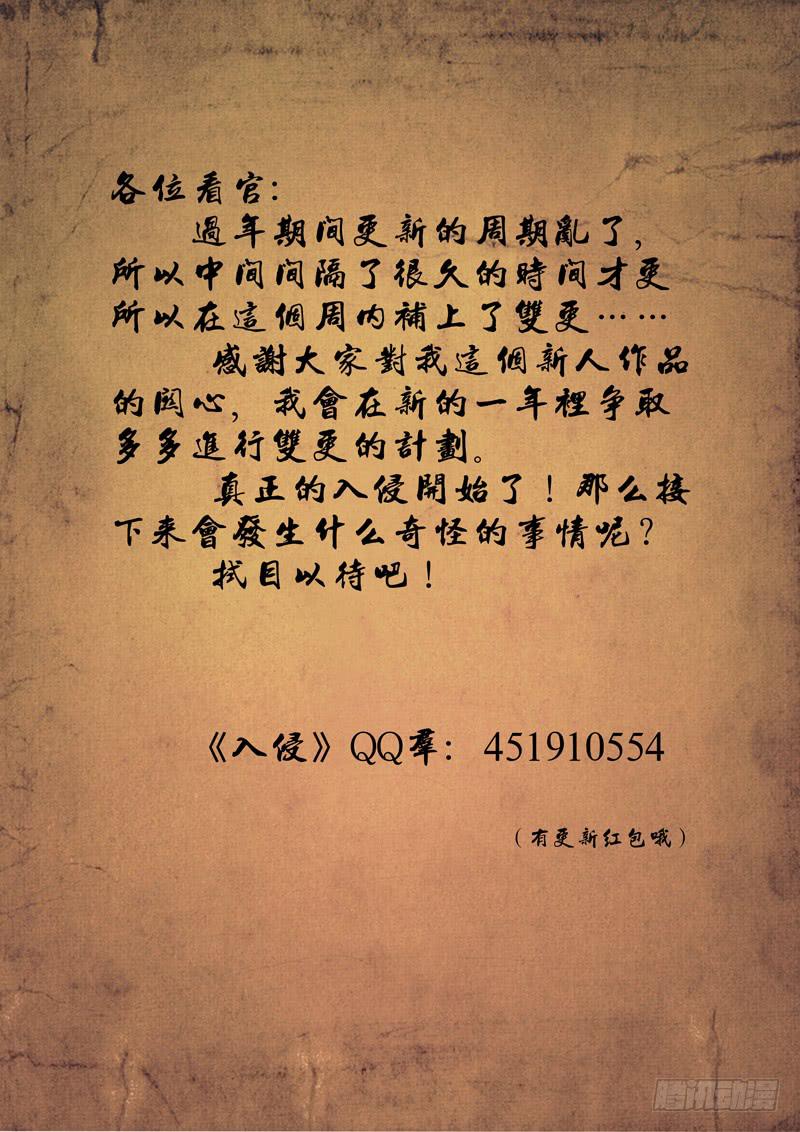 各位看官：
過年期间更新的周期亂了，
所以中间间隔了很久的時间才更
所以在這個周内補上了雙更……
感謝大家對我這個新人作品
的関心，我會在新的一年裡争取
多多進行雙更的計劃。
真正的入侵開始了！那么接
下来會發生什么奇怪的事情呢？
拭目以待吧！
《入侵》QQ羣：451910554
（有更新红包哦）
腾讯动漫